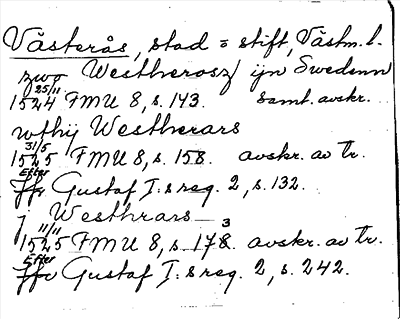 Västerås, stad o stift, Västm. l.
zwo Westherosz ijn Swedenn
25/11 1524 FMU 8, s. 143. samt. avskr.
wthij Westherars
31/5 1525 FMU 8, s. 158. avskr. av tr.
Efter Gustaf I:s reg. 2, s. 132.
j Westhrars
11/11 1525 FMU 8, s. 173. avskr. av tr.
Efter Gustaf I:s reg. 2, s. 242.